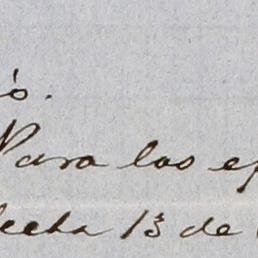 ó.
Para los ef
fecha 13 de